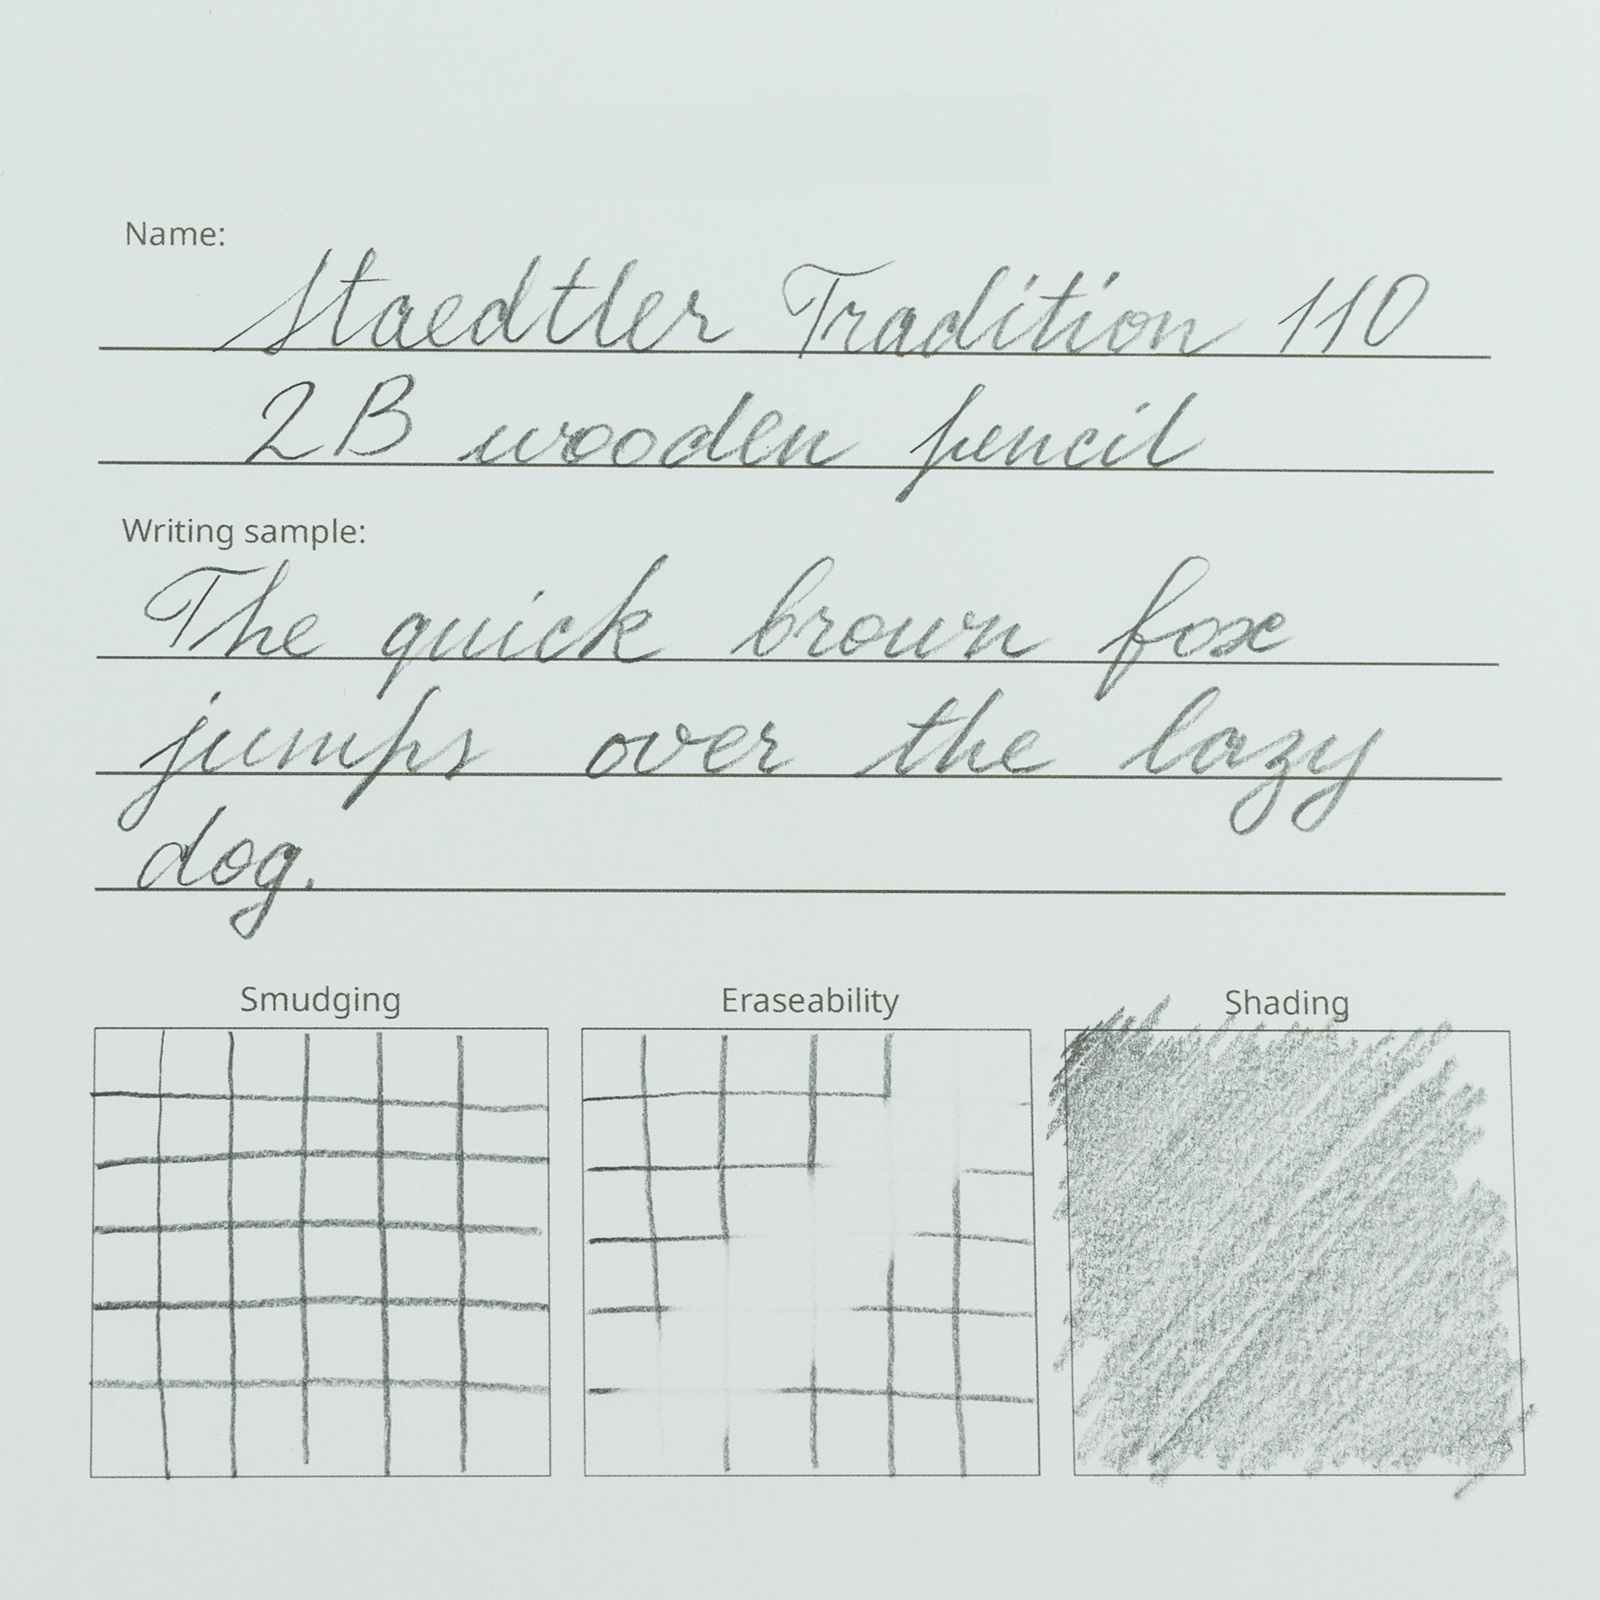 Name:
Staedtler Tradition 110
2B wooden pencil
Writing sample:
The quick brown fox
jumps over the lazy
dog.
Smudging Eraseability Shading